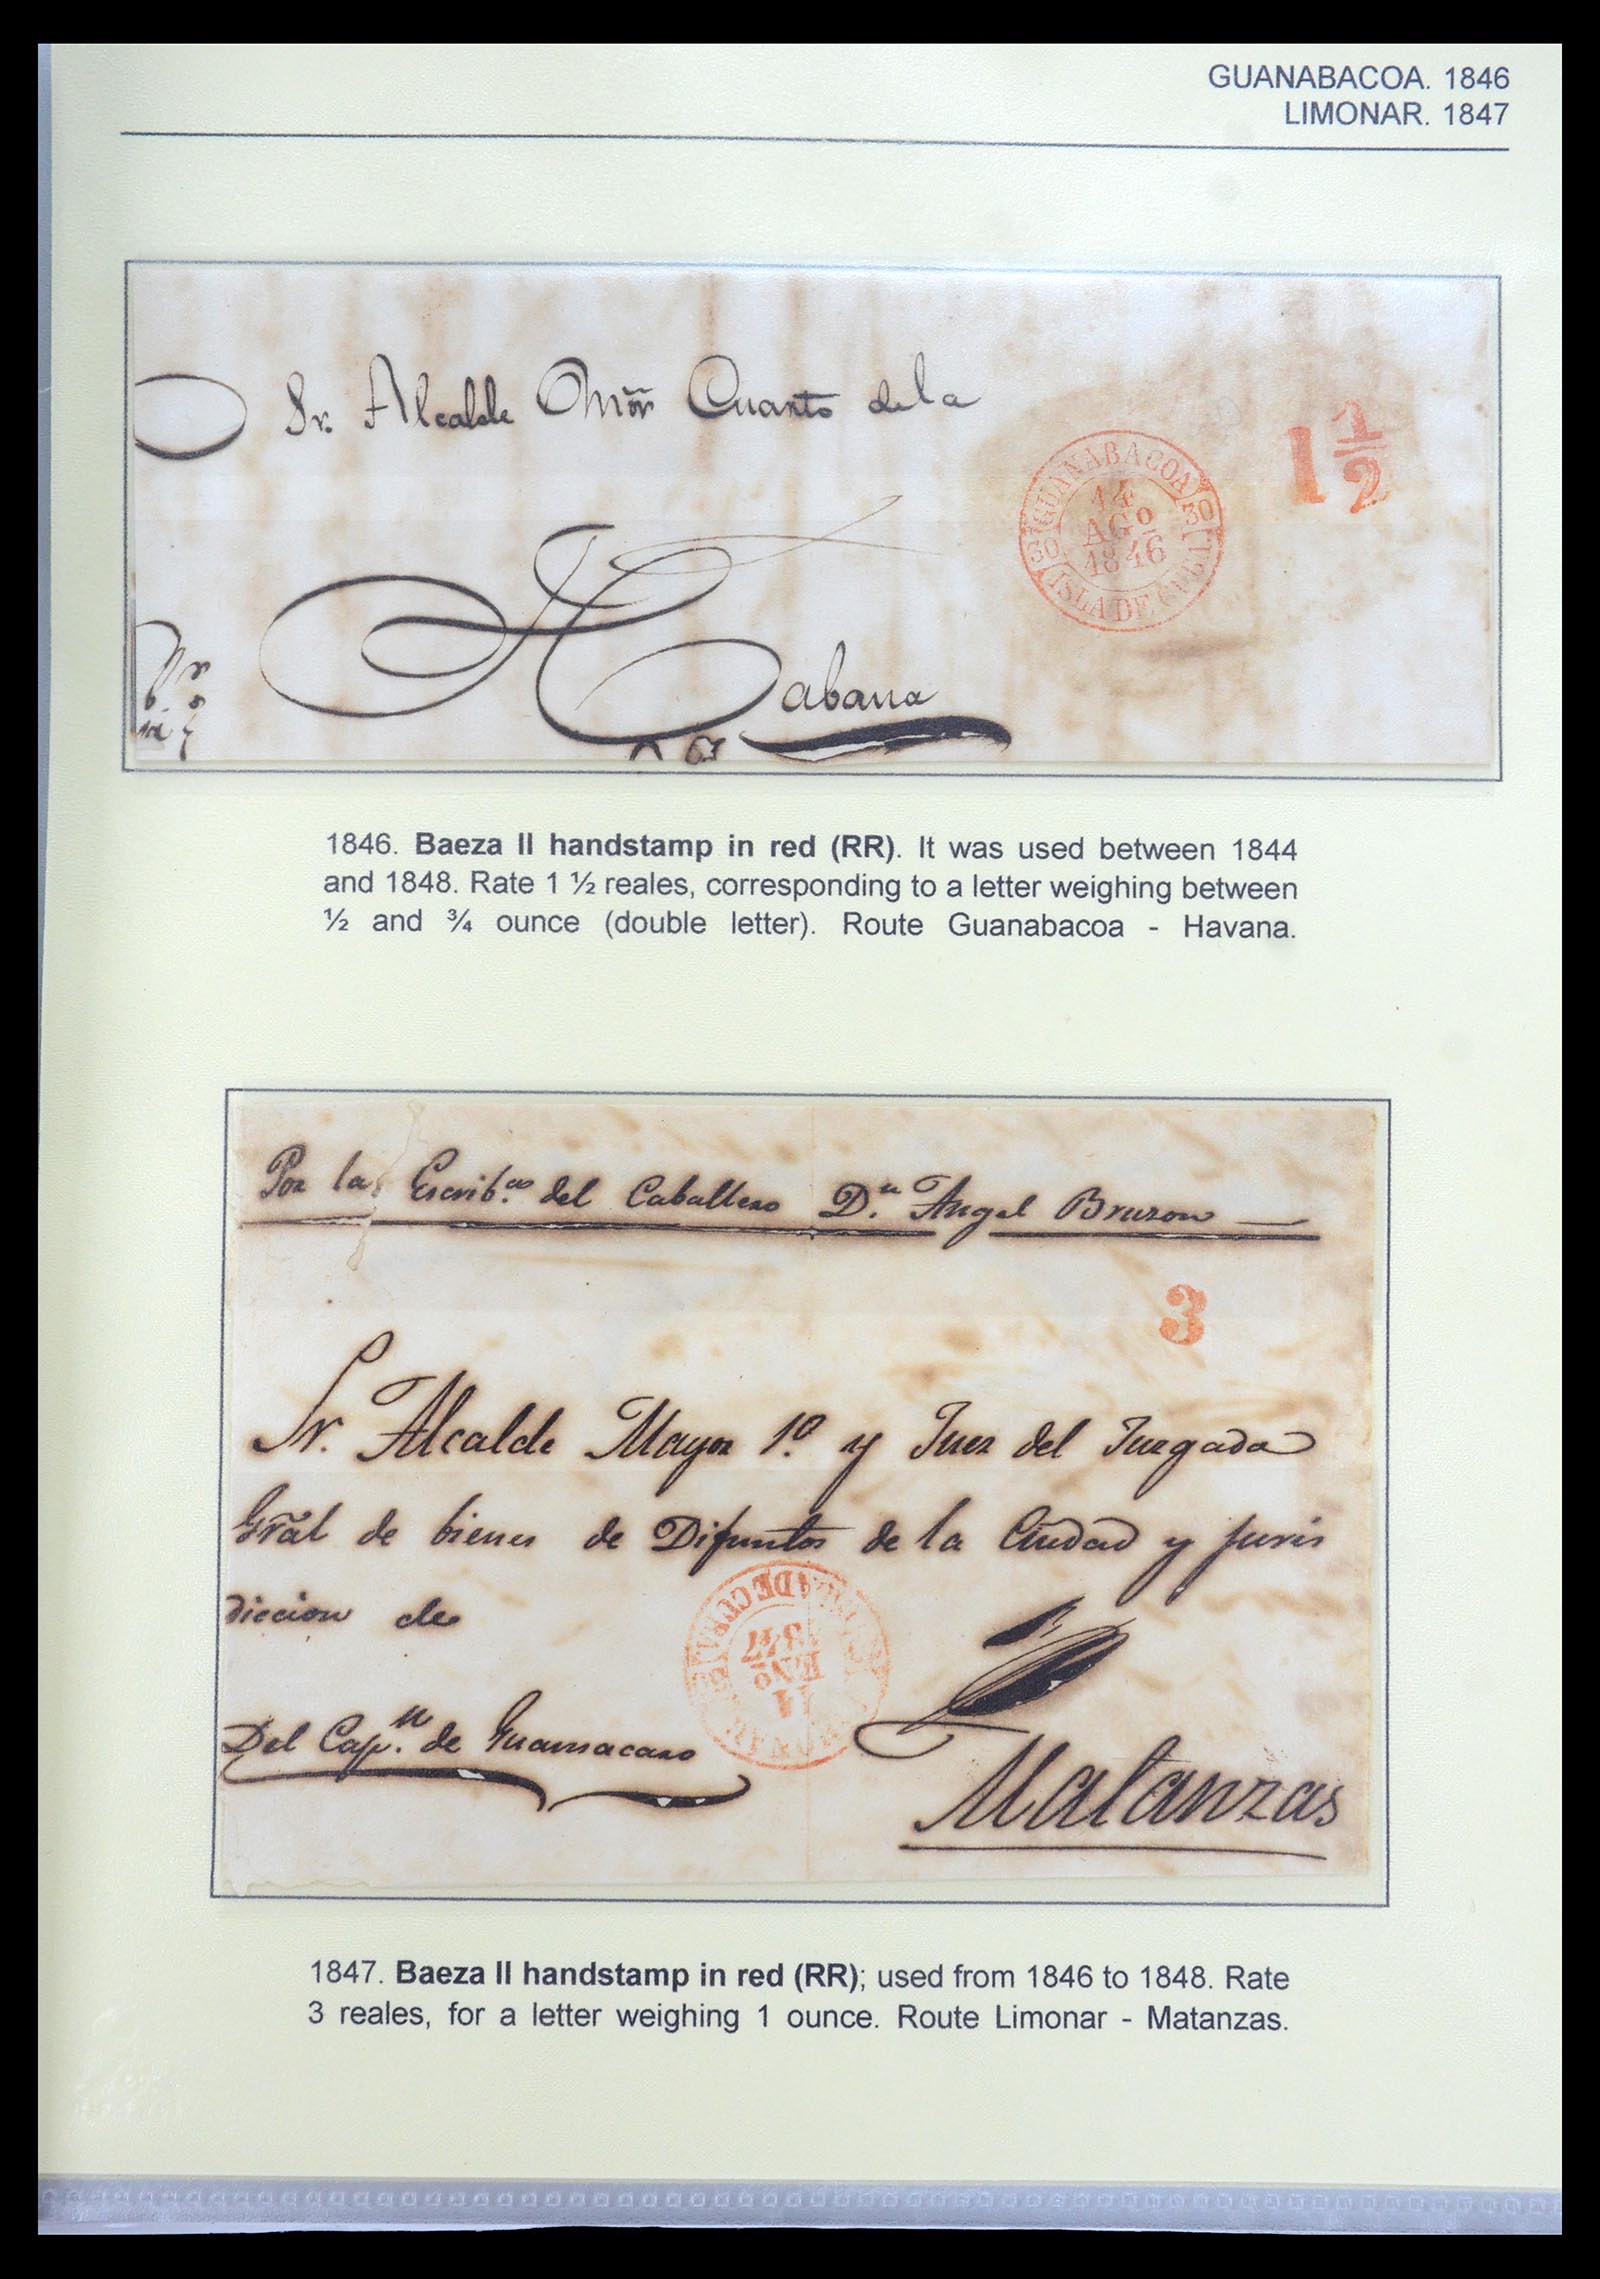 GUANABACOA. 1846
LIMONAR. 1847
Sr. Alcalde Cuarto de la
Habana
GUANABACOA
30 30
14
AGº
1846
ISLA DE CUBA
1 1/2
1846. Baeza II handstamp in red (RR). It was used between 1844
and 1848. Rate 1 ½ reales, corresponding to a letter weighing between
½ and ¾ ounce (double letter). Route Guanabacoa - Havana.
Por la Escrib.as del Caballero Dn. Angel Bruzon
3
Sr. Alcalde Mayor 1º. y Juez del Juzgado
Gral de bienes de Difuntos de la Ciudad y juris
diccion de
11
ENº
1847
Del Capn. de Guamacaro
Matanzas
1847. Baeza II handstamp in red (RR); used from 1846 to 1848. Rate
3 reales, for a letter weighing 1 ounce. Route Limonar - Matanzas.